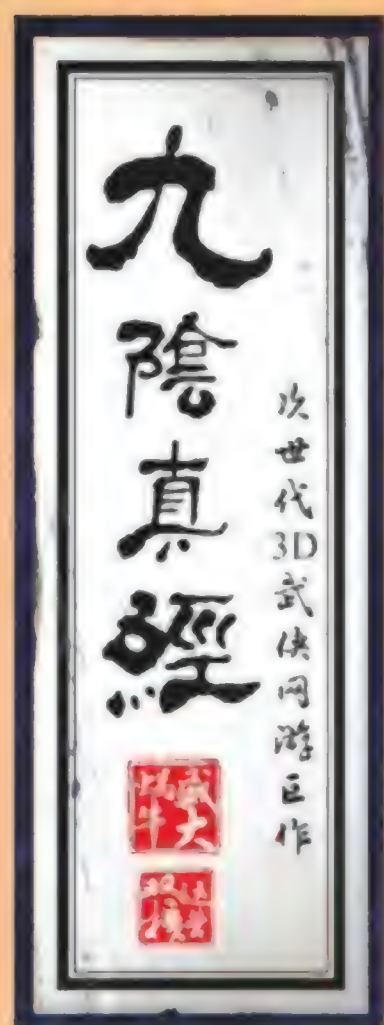 九陰真經
次世代3D武侠网游巨作